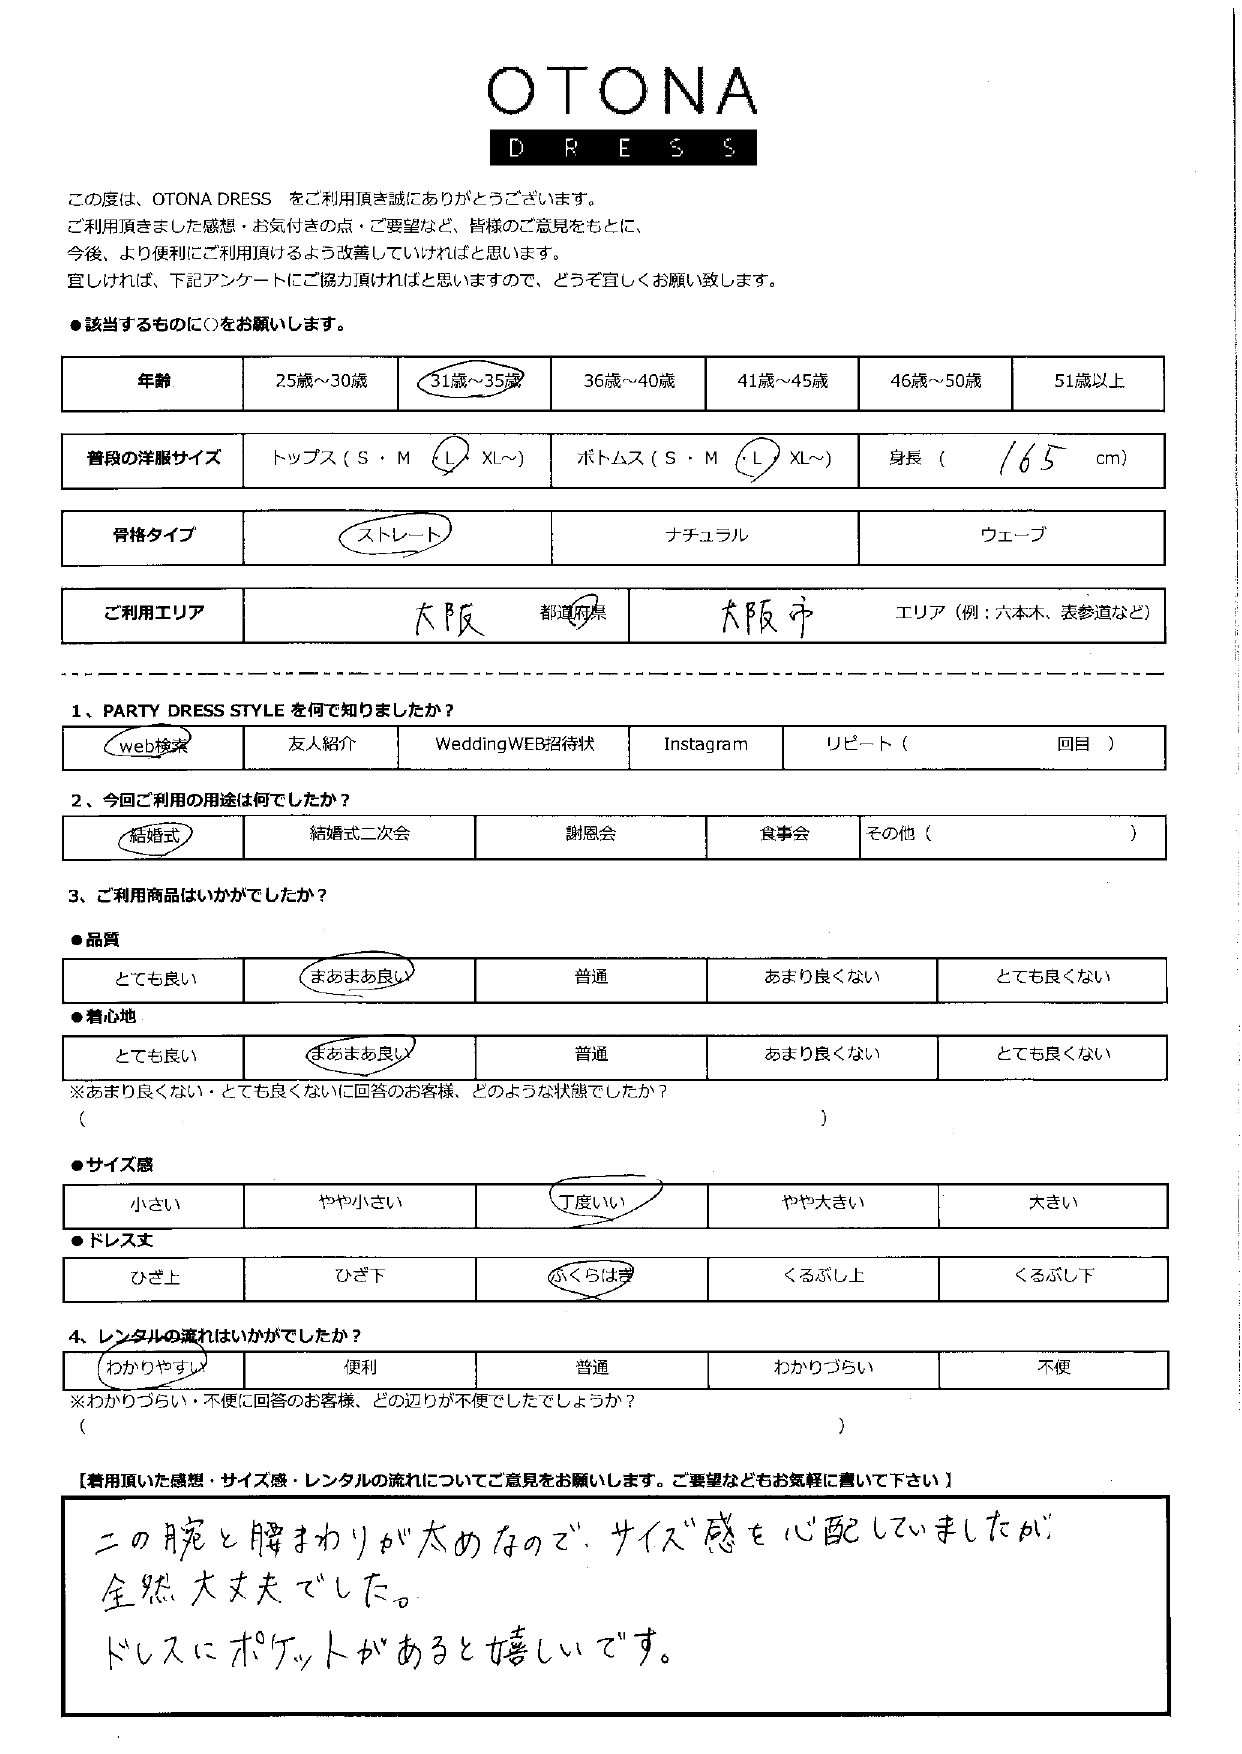 OTONA
DRESS
この度は、OTONA DRESS　をご利用頂き誠にありがとうございます。
ご利用頂きました感想・お気付きの点・ご要望など、皆様のご意見をもとに、
今後、より便利にご利用頂けるよう改善していければと思います。
宜しければ、下記アンケートにご協力頂ければと思いますので、どうぞ宜しくお願い致します。
●該当するものに○をお願いします。
年齢 25歳～30歳 31歳～35歳 36歳～40歳 41歳～45歳 46歳～50歳 51歳以上
普段の洋服サイズ トップス ( S ・ M ・ L ・ XL～) ボトムス ( S ・ M ・ L ・ XL～) 身長 ( 165 cm)
骨格タイプ ストレート ナチュラル ウェーブ
ご利用エリア 大阪 都道府県 大阪市 エリア（例：六本木、表参道など）
1、PARTY DRESS STYLE を何で知りましたか？
web検索 友人紹介 WeddingWEB招待状 Instagram リピート（ 回目 ）
2、今回ご利用の用途は何でしたか？
結婚式 結婚式二次会 謝恩会 食事会 その他（ ）
3、ご利用商品はいかがでしたか？
●品質
とても良い まあまあ良い 普通 あまり良くない とても良くない
●着心地
とても良い まあまあ良い 普通 あまり良くない とても良くない
※あまり良くない・とても良くないに回答のお客様、どのような状態でしたか？
（ ）
●サイズ感
小さい やや小さい 丁度いい やや大きい 大きい
●ドレス丈
ひざ上 ひざ下 ふくらはぎ くるぶし上 くるぶし下
4、レンタルの流れはいかがでしたか？
わかりやすい 便利 普通 わかりづらい 不便
※わかりづらい・不便に回答のお客様、どの辺りが不便でしたでしょうか？
（ ）
【着用頂いた感想・サイズ感・レンタルの流れについてご意見をお願いします。ご要望などもお気軽に書いて下さい】
二の腕と腰まわりが太めなので、サイズ感を心配していましたが、
全然大丈夫でした。
ドレスにポケットがあると嬉しいです。